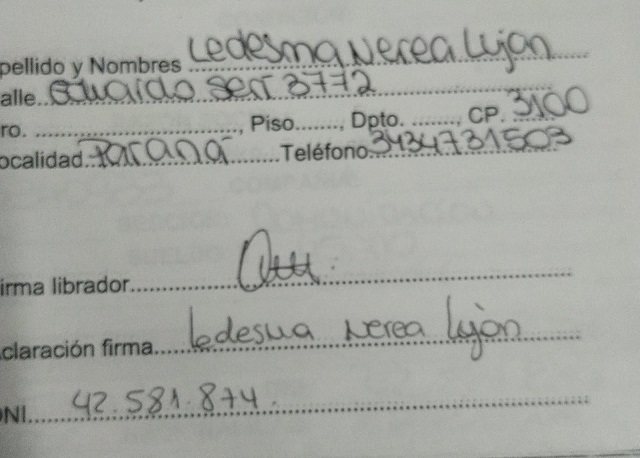 pellido y Nombres Ledesma Nerea Lujan
alle. Eduardo Seri 3772
ro. ..............................., Piso......., Dpto. ......., CP. 3100
ocalidad Paraná Teléfono 3434731503
irma librador
claración firma Ledesma Nerea Lujan
NI 42.581.874.